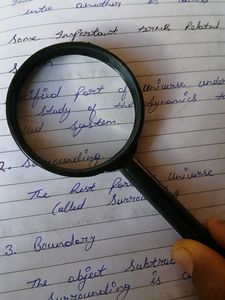 into another is
Some Important terms Related
Specified Part of Universe under
study of thermodynamics
called system.
2. Surrounding.
The Rest Part Universe
Called Surrou
3. Boundary
The object
Surrounding is